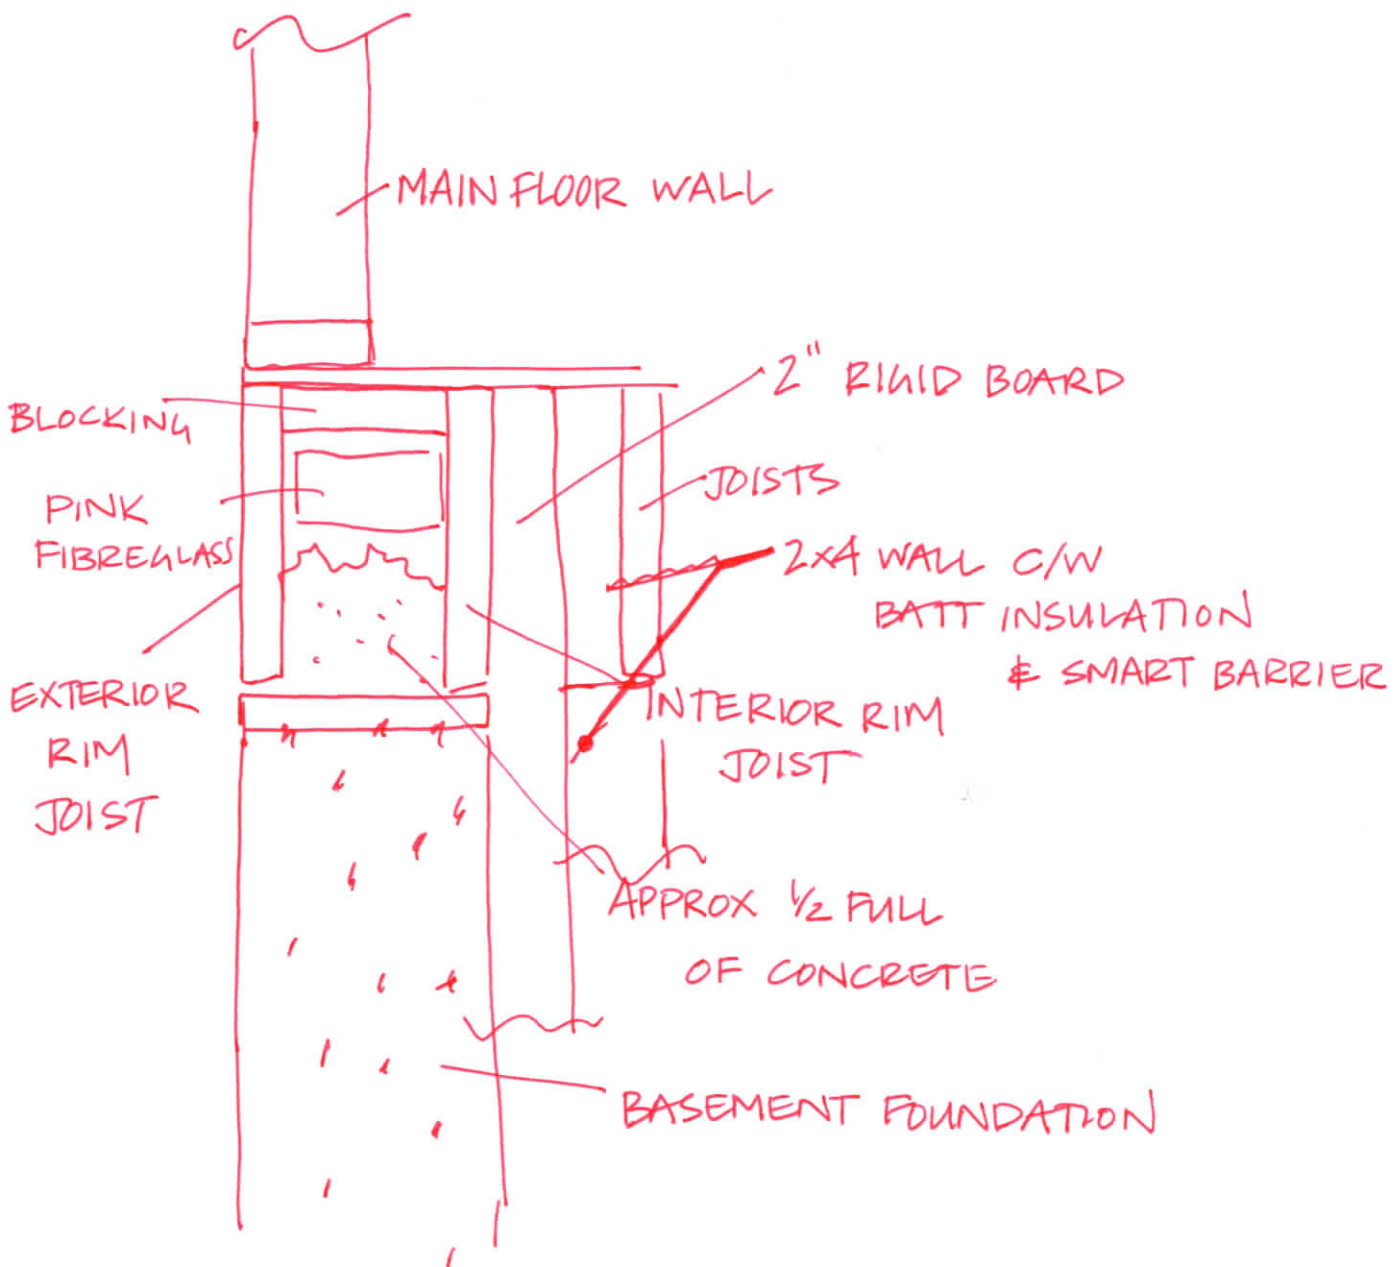 MAIN FLOOR WALL
2" RIGID BOARD
BLOCKING
JOISTS
PINK
FIBREGLASS
2x4 WALL C/W
BATT INSULATION
& SMART BARRIER
EXTERIOR
RIM
JOIST
INTERIOR RIM
JOIST
APPROX 1/2 FULL
OF CONCRETE
BASEMENT FOUNDATION